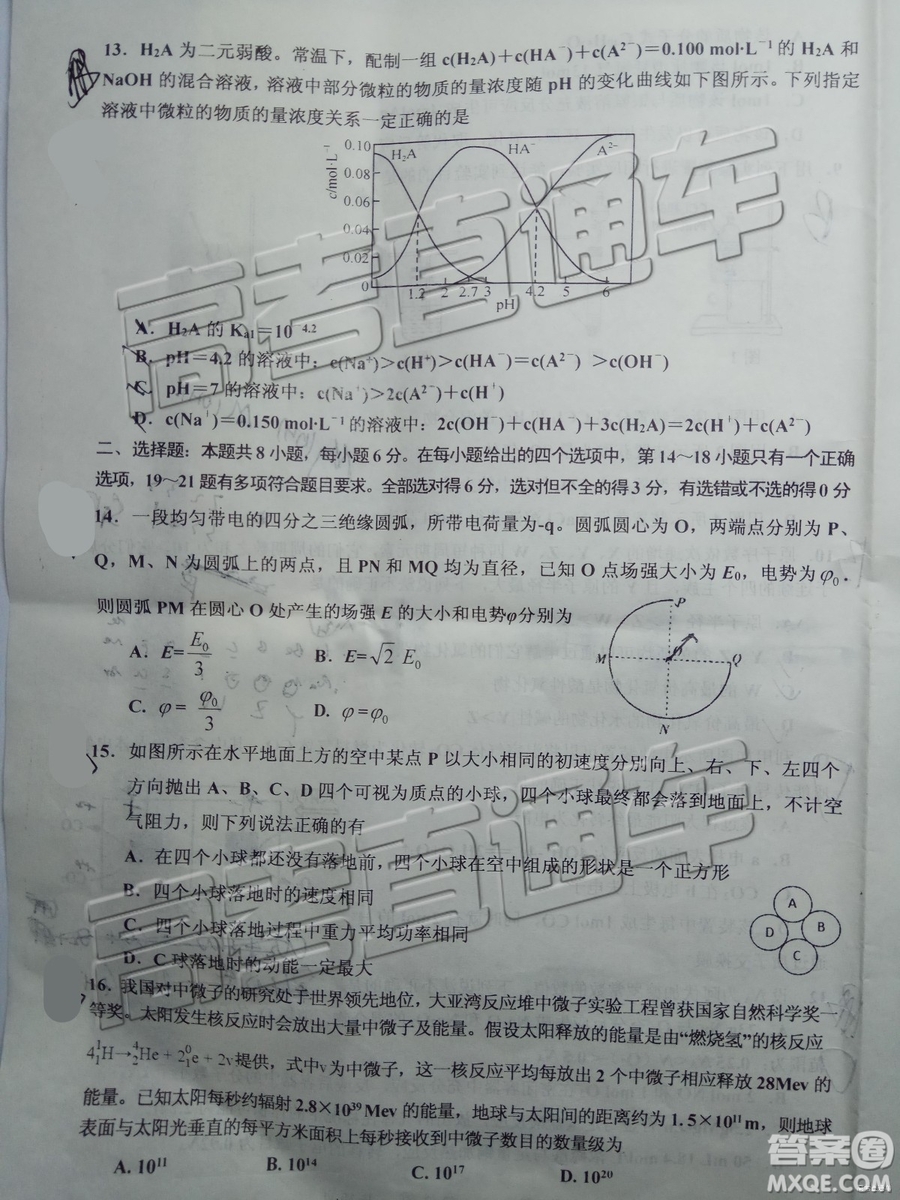 13. H₂A 为二元弱酸。常温下，配制一组 c(H₂A)+c(HA⁻)+c(A²⁻)=0.100 mol·L⁻¹ 的 H₂A 和
NaOH 的混合溶液，溶液中部分微粒的物质的量浓度随 pH 的变化曲线如下图所示。下列指定
溶液中微粒的物质的量浓度关系一定正确的是
c/mol·L⁻¹
0.10
0.08
0.06
0.04
0.02
0
H₂A
HA⁻
A²⁻
1.2 2 2.7 3 4.2 5 6
pH
A. H₂A 的 Kₐ₁=10⁻⁴·²
B. pH=4.2 的溶液中：c(Na⁺)>c(H⁺)>c(HA⁻)=c(A²⁻) >c(OH⁻)
C. pH=7 的溶液中：c(Na⁺)>2c(A²⁻)+c(H⁺)
D. c(Na⁺)=0.150 mol·L⁻¹ 的溶液中：2c(OH⁻)+c(HA⁻)+3c(H₂A)=2c(H⁺)+c(A²⁻)
二、选择题：本题共 8 小题，每小题 6 分。在每小题给出的四个选项中，第 14～18 小题只有一个正确
选项，19～21 题有多项符合题目要求。全部选对得 6 分，选对但不全的得 3 分，有选错或不选的得 0 分
14. 一段均匀带电的四分之三绝缘圆弧，所带电荷量为-q。圆弧圆心为 O，两端点分别为 P、
Q，M、N 为圆弧上的两点，且 PN 和 MQ 均为直径，已知 O 点场强大小为 E₀，电势为 φ₀．
则圆弧 PM 在圆心 O 处产生的场强 E 的大小和电势φ分别为
A. E=E₀/3 B. E=√2 E₀
C. φ = φ₀/3 D. φ=φ₀
P
M
O
Q
N
15. 如图所示在水平地面上方的空中某点 P 以大小相同的初速度分别向上、右、下、左四个
方向抛出 A、B、C、D 四个可视为质点的小球，四个小球最终都会落到地面上，不计空
气阻力，则下列说法正确的有
A. 在四个小球都还没有落地前，四个小球在空中组成的形状是一个正方形
B. 四个小球落地时的速度相同
C. 四个小球落地过程中重力平均功率相同
D. C 球落地时的动能一定最大
A
D B
C
16. 我国对中微子的研究处于世界领先地位，大亚湾反应堆中微子实验工程曾获国家自然科学奖一
等奖。太阳发生核反应时会放出大量中微子及能量。假设太阳释放的能量是由“燃烧氢”的核反应
4¹₁H→⁴₂He + 2⁰₁e + 2v 提供，式中v 为中微子，这一核反应平均每放出 2 个中微子相应释放 28Mev 的
能量。已知太阳每秒约辐射 2.8×10³⁹Mev 的能量，地球与太阳间的距离约为 1.5×10¹¹m，则地球
表面与太阳光垂直的每平方米面积上每秒接收到中微子数目的数量级为
A. 10¹¹ B. 10¹⁴ C. 10¹⁷ D. 10²⁰
高考直通车
高考直通车
答案圈
MXQE.COM